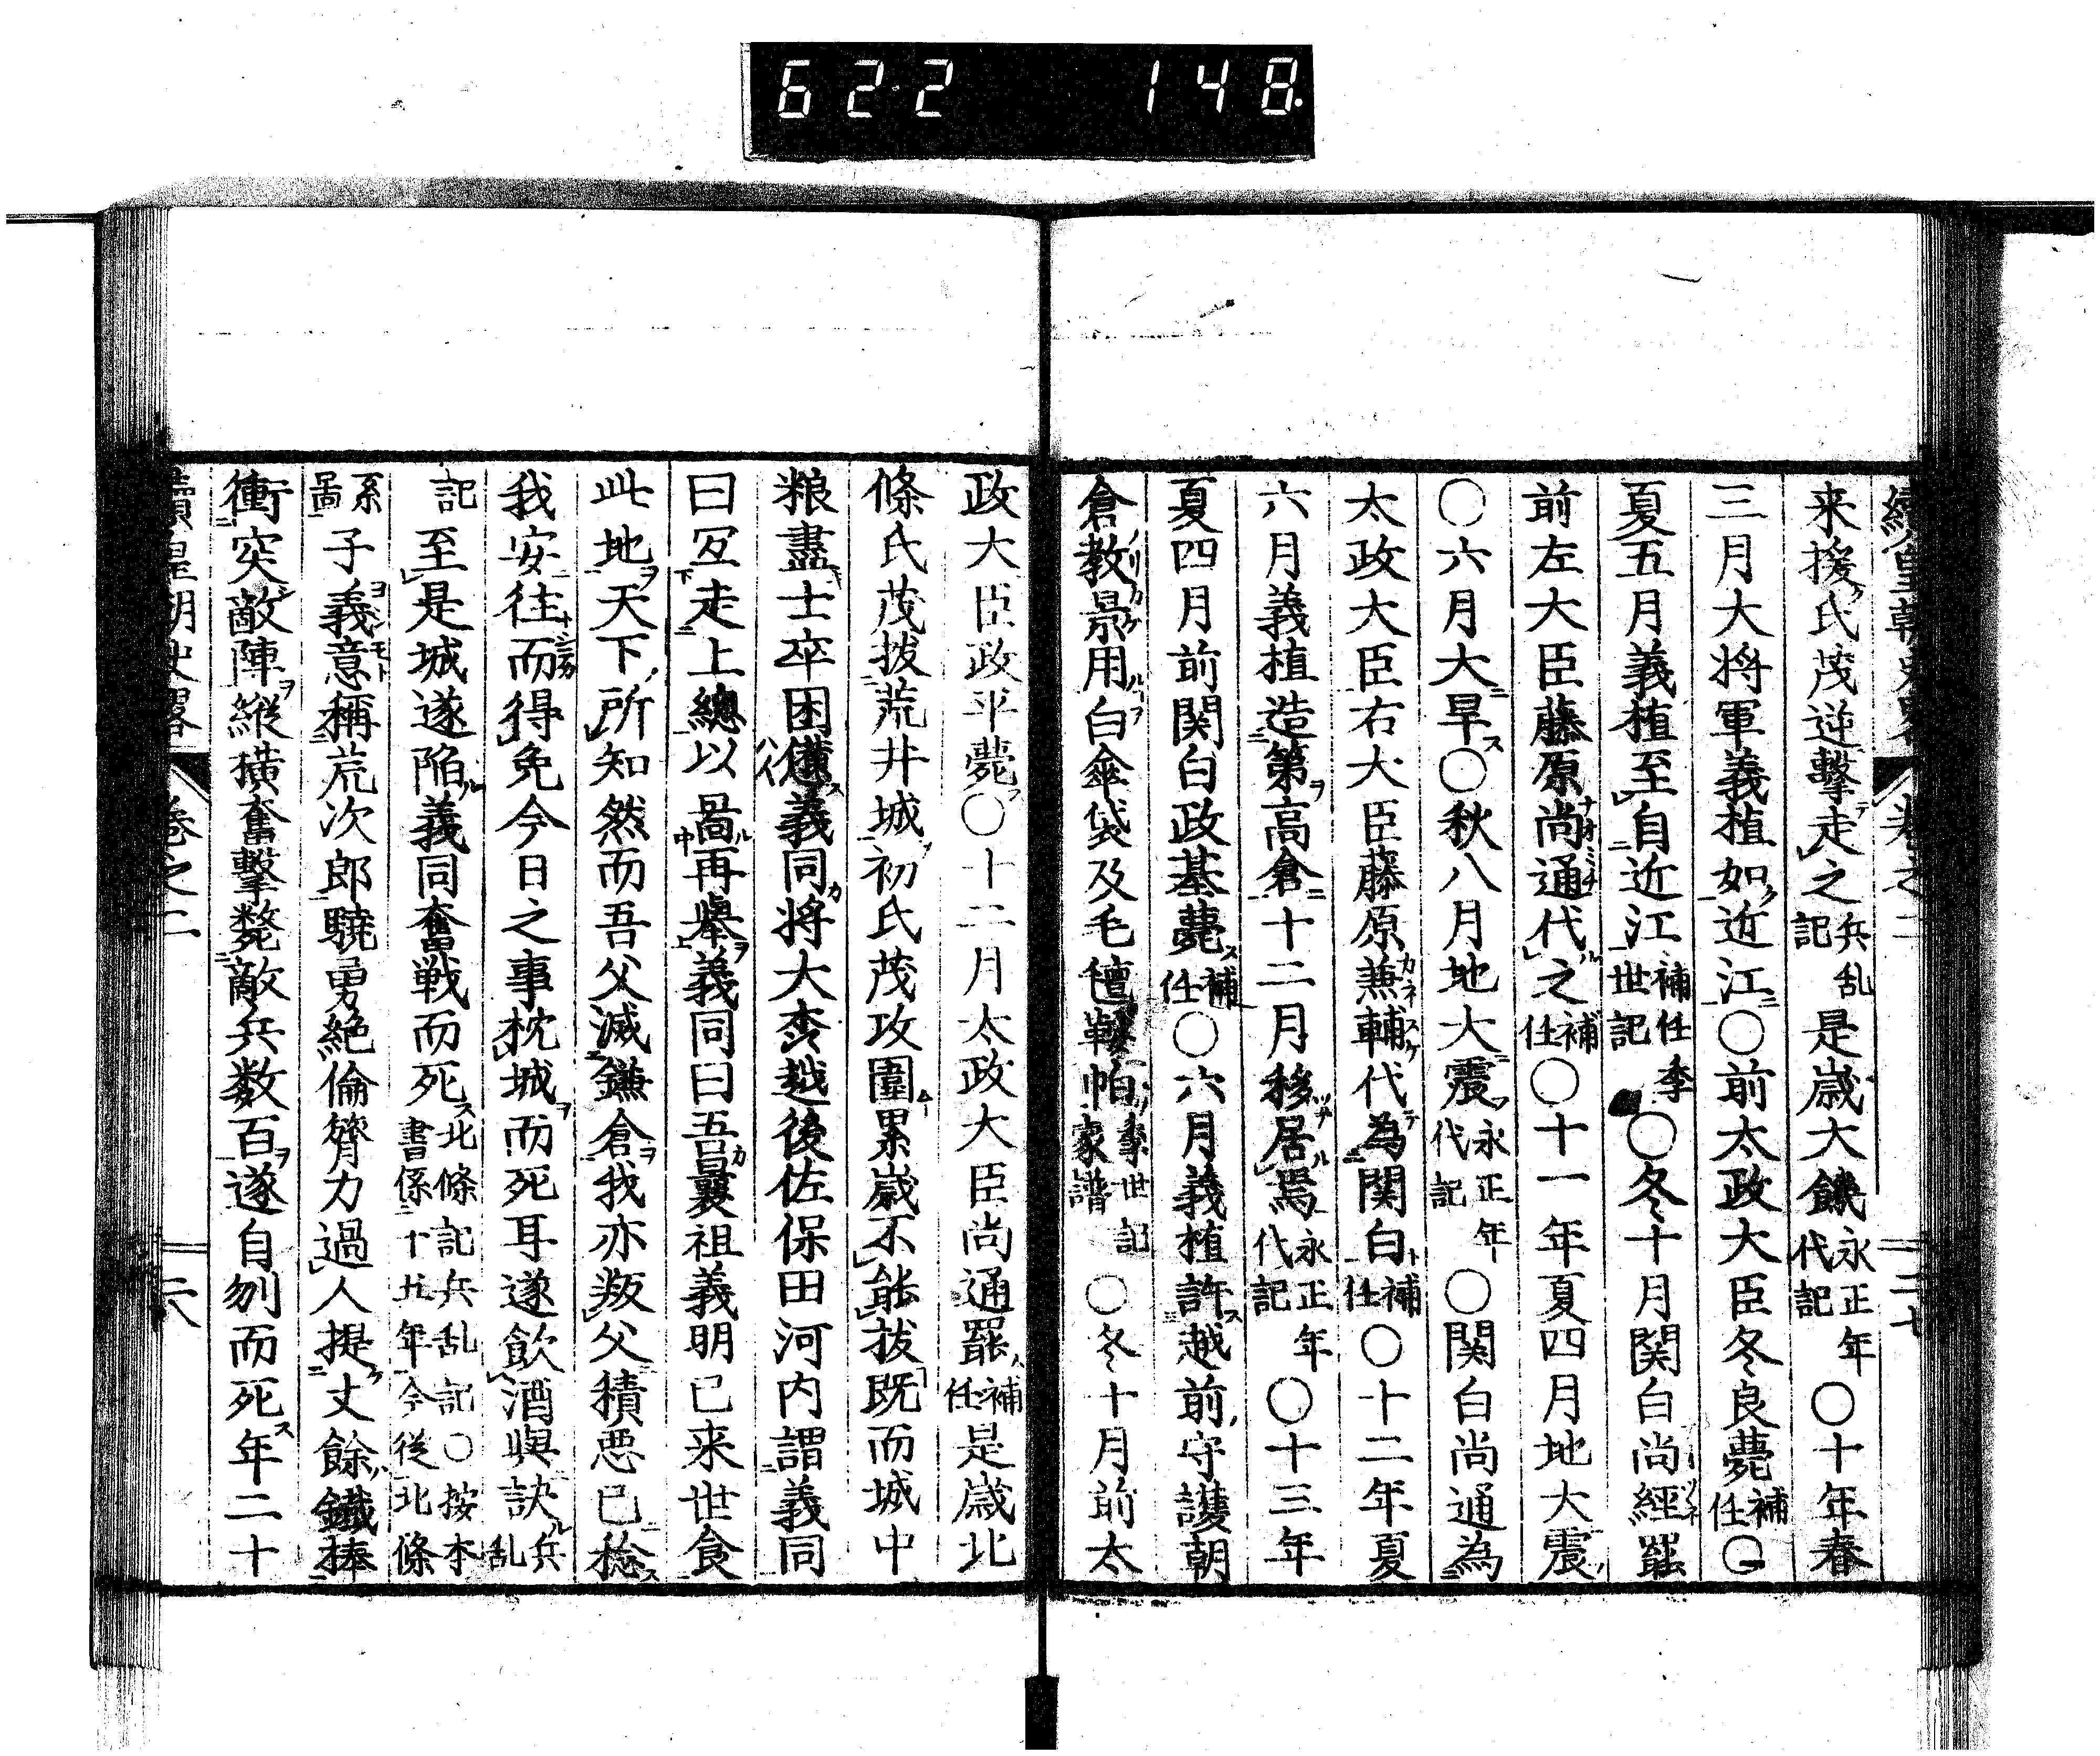 62.2 148.
續皇朝史略 卷之二 二十七
来援氏茂逆撃走之兵乱記是歳大饑永正年代記〇十年春
三月大将軍義植如近江〇前太政大臣冬良薨補任〇
夏五月義植至自近江補任季世記〇冬十月関白尚經罷
前左大臣藤原尚通代之補任〇十一年夏四月地大震
〇六月大旱〇秋八月地大震永正年代記〇関白尚通為
太政大臣右大臣藤原兼輔代為関白補任〇十二年夏
六月義植造第高倉十二月移居焉永正年代記〇十三年
夏四月前関白政基薨補任〇六月義植許越前守護朝
倉教景用白傘袋及毛氊鞍帕季世記家譜〇冬十月前太
政大臣政平薨〇十二月太政大臣尚通罷補任是歳北
條氏茂拔荒井城初氏茂攻圍累歳不能拔既而城中
粮盡士卒困憊義同将大森越後佐保田河内謂義同
曰宜走上總以啚再擧義同曰吾曩祖義明已来世食
此地天下所知然而吾父滅鎌倉我亦叛父積悪已稔
我安往而得免今日之事枕城而死耳遂飲酒與訣兵乱
記至是城遂陥義同奮戦而死北條記兵乱記〇按本書係十五年今従北條
系啚子義意稱荒次郎驍勇絶倫膂力過人提丈餘鐵棒
衝突敵陣縱横奮撃斃敵兵数百遂自刎而死年二十
續皇朝史畧 卷之二 六